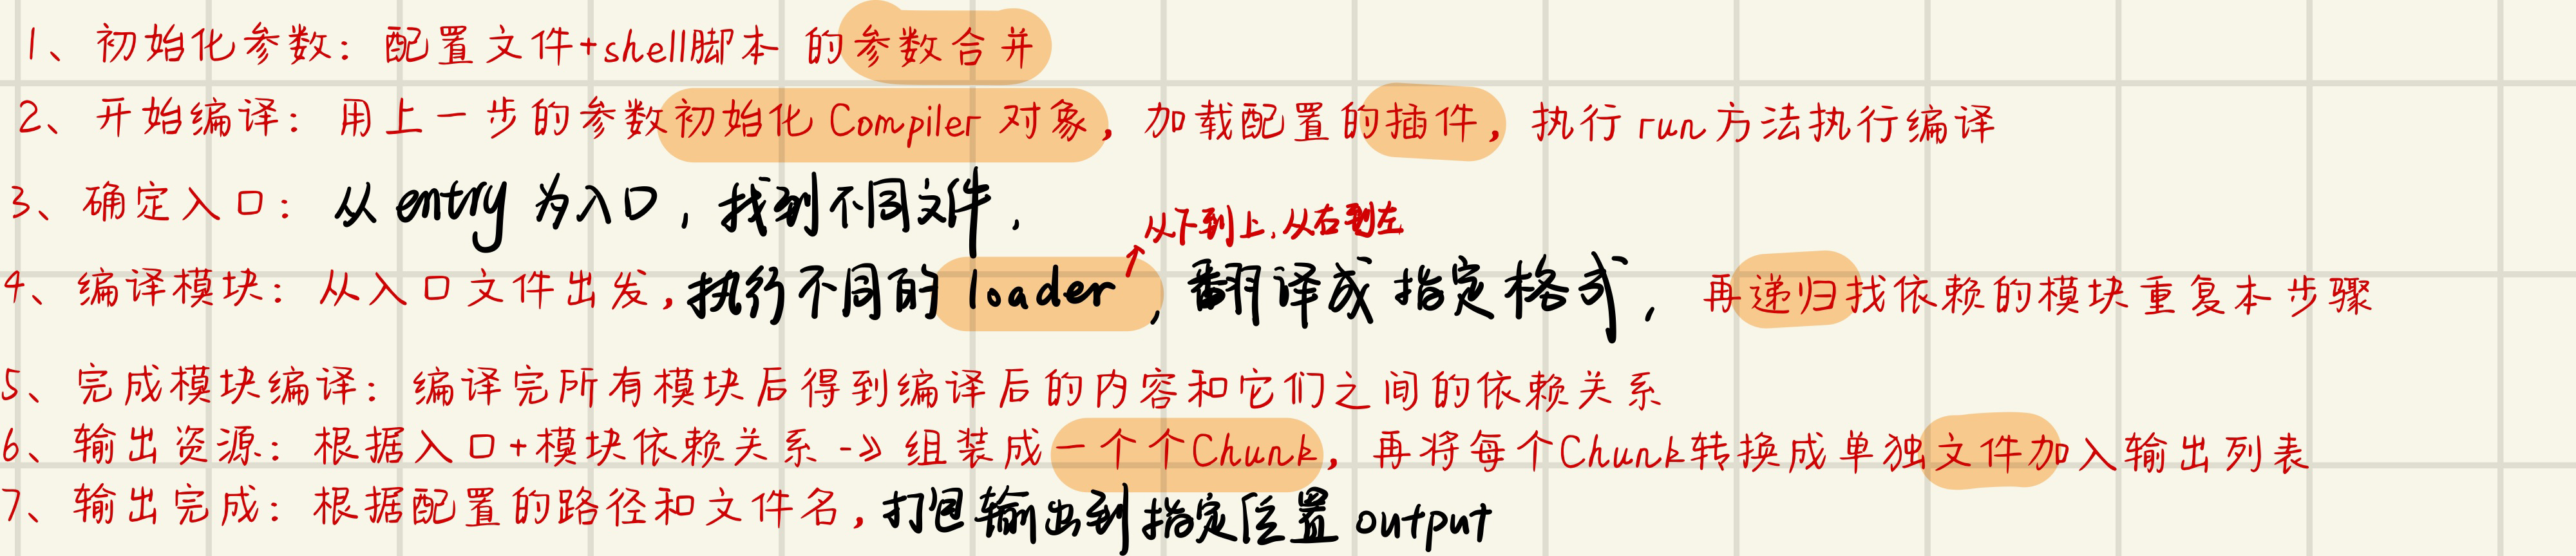 1、初始化参数：配置文件+shell脚本 的参数合并
2、开始编译：用上一步的参数初始化 Compiler 对象，加载配置的插件，执行 run 方法执行编译
3、确定入口：从 entry 为入口，找到不同文件，
从下到上，从右到左
4、编译模块：从入口文件出发，执行不同的 loader，翻译成指定格式，再递归找依赖的模块重复本步骤
5、完成模块编译：编译完所有模块后得到编译后的内容和它们之间的依赖关系
6、输出资源：根据入口+模块依赖关系 ->> 组装成一个个Chunk，再将每个Chunk转换成单独文件加入输出列表
7、输出完成：根据配置的路径和文件名，打包输出到指定位置 output